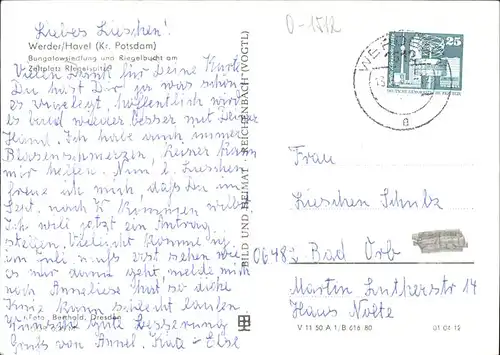 Liebes Lieschen!
Werder/Havel (Kr. Potsdam)
Bungalowsiedlung und Riegelbucht am
Zeltplatz Riegelspitze
Vielen Dank für Deine Karte
Du hast Dir ja was schön
es zugelegt, hoffentlich wird
es bald wieder besser mit Deiner
Hand. Ich habe auch immer
Blasenschmerzen, keiner kann
mir helfen. Nun l. Lieschen
freue ich mich daß Du im
Sept. nach K kommen willst
Ich will jetzt ein Antrag
stellen. Vielleicht komme ich
im Juli. muß erst sehen wie
es mir dann geht, melde mich
nach Anneliese hat so dicke
Knie kann schlecht laufen.
Wünsche gute Besserung
Gruß von Annel. Else
Foto: Berthold, Dresden
BILD UND HEIMAT REICHENBACH (VOGTL)
0-1512
WERDER
25
DEUTSCHE DEMOKRATISCHE REPUBLIK
a
Frau
Lieschen Schulz
6482 Bad Orb
Martin Lutherstr 14
Haus Nolte
V 11 50 A 1, B 616/80 01 04 12